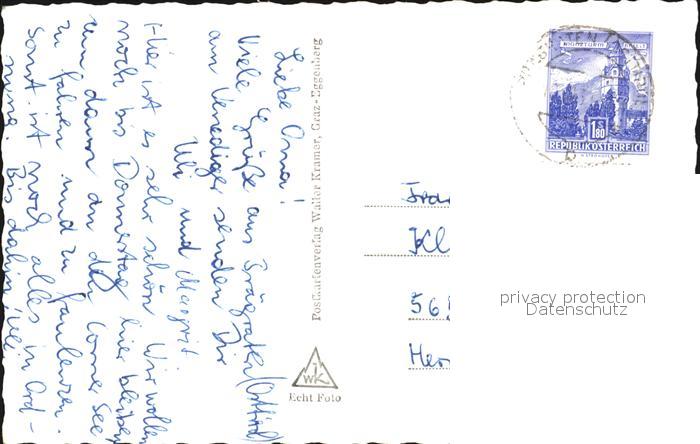 Liebe Oma!
Viele Grüße aus Prägraten (Osttirol)
am Venediger senden Dir
Uli und Margrit.
Hier ist es sehr schön. Wir wollen
noch bis Donnerstag hier bleiben
um dann an den Comer See
zu fahren und zu faulenzen.
Sonst ist noch alles in Ord-
nung. Bis dahin
Postkartenverlag Walter Kramer, Graz-Eggenberg
WK
Echt Foto
1.80
REPUBLIK ÖSTERREICH
Kl
56
Her
privacy protection
Datenschutz